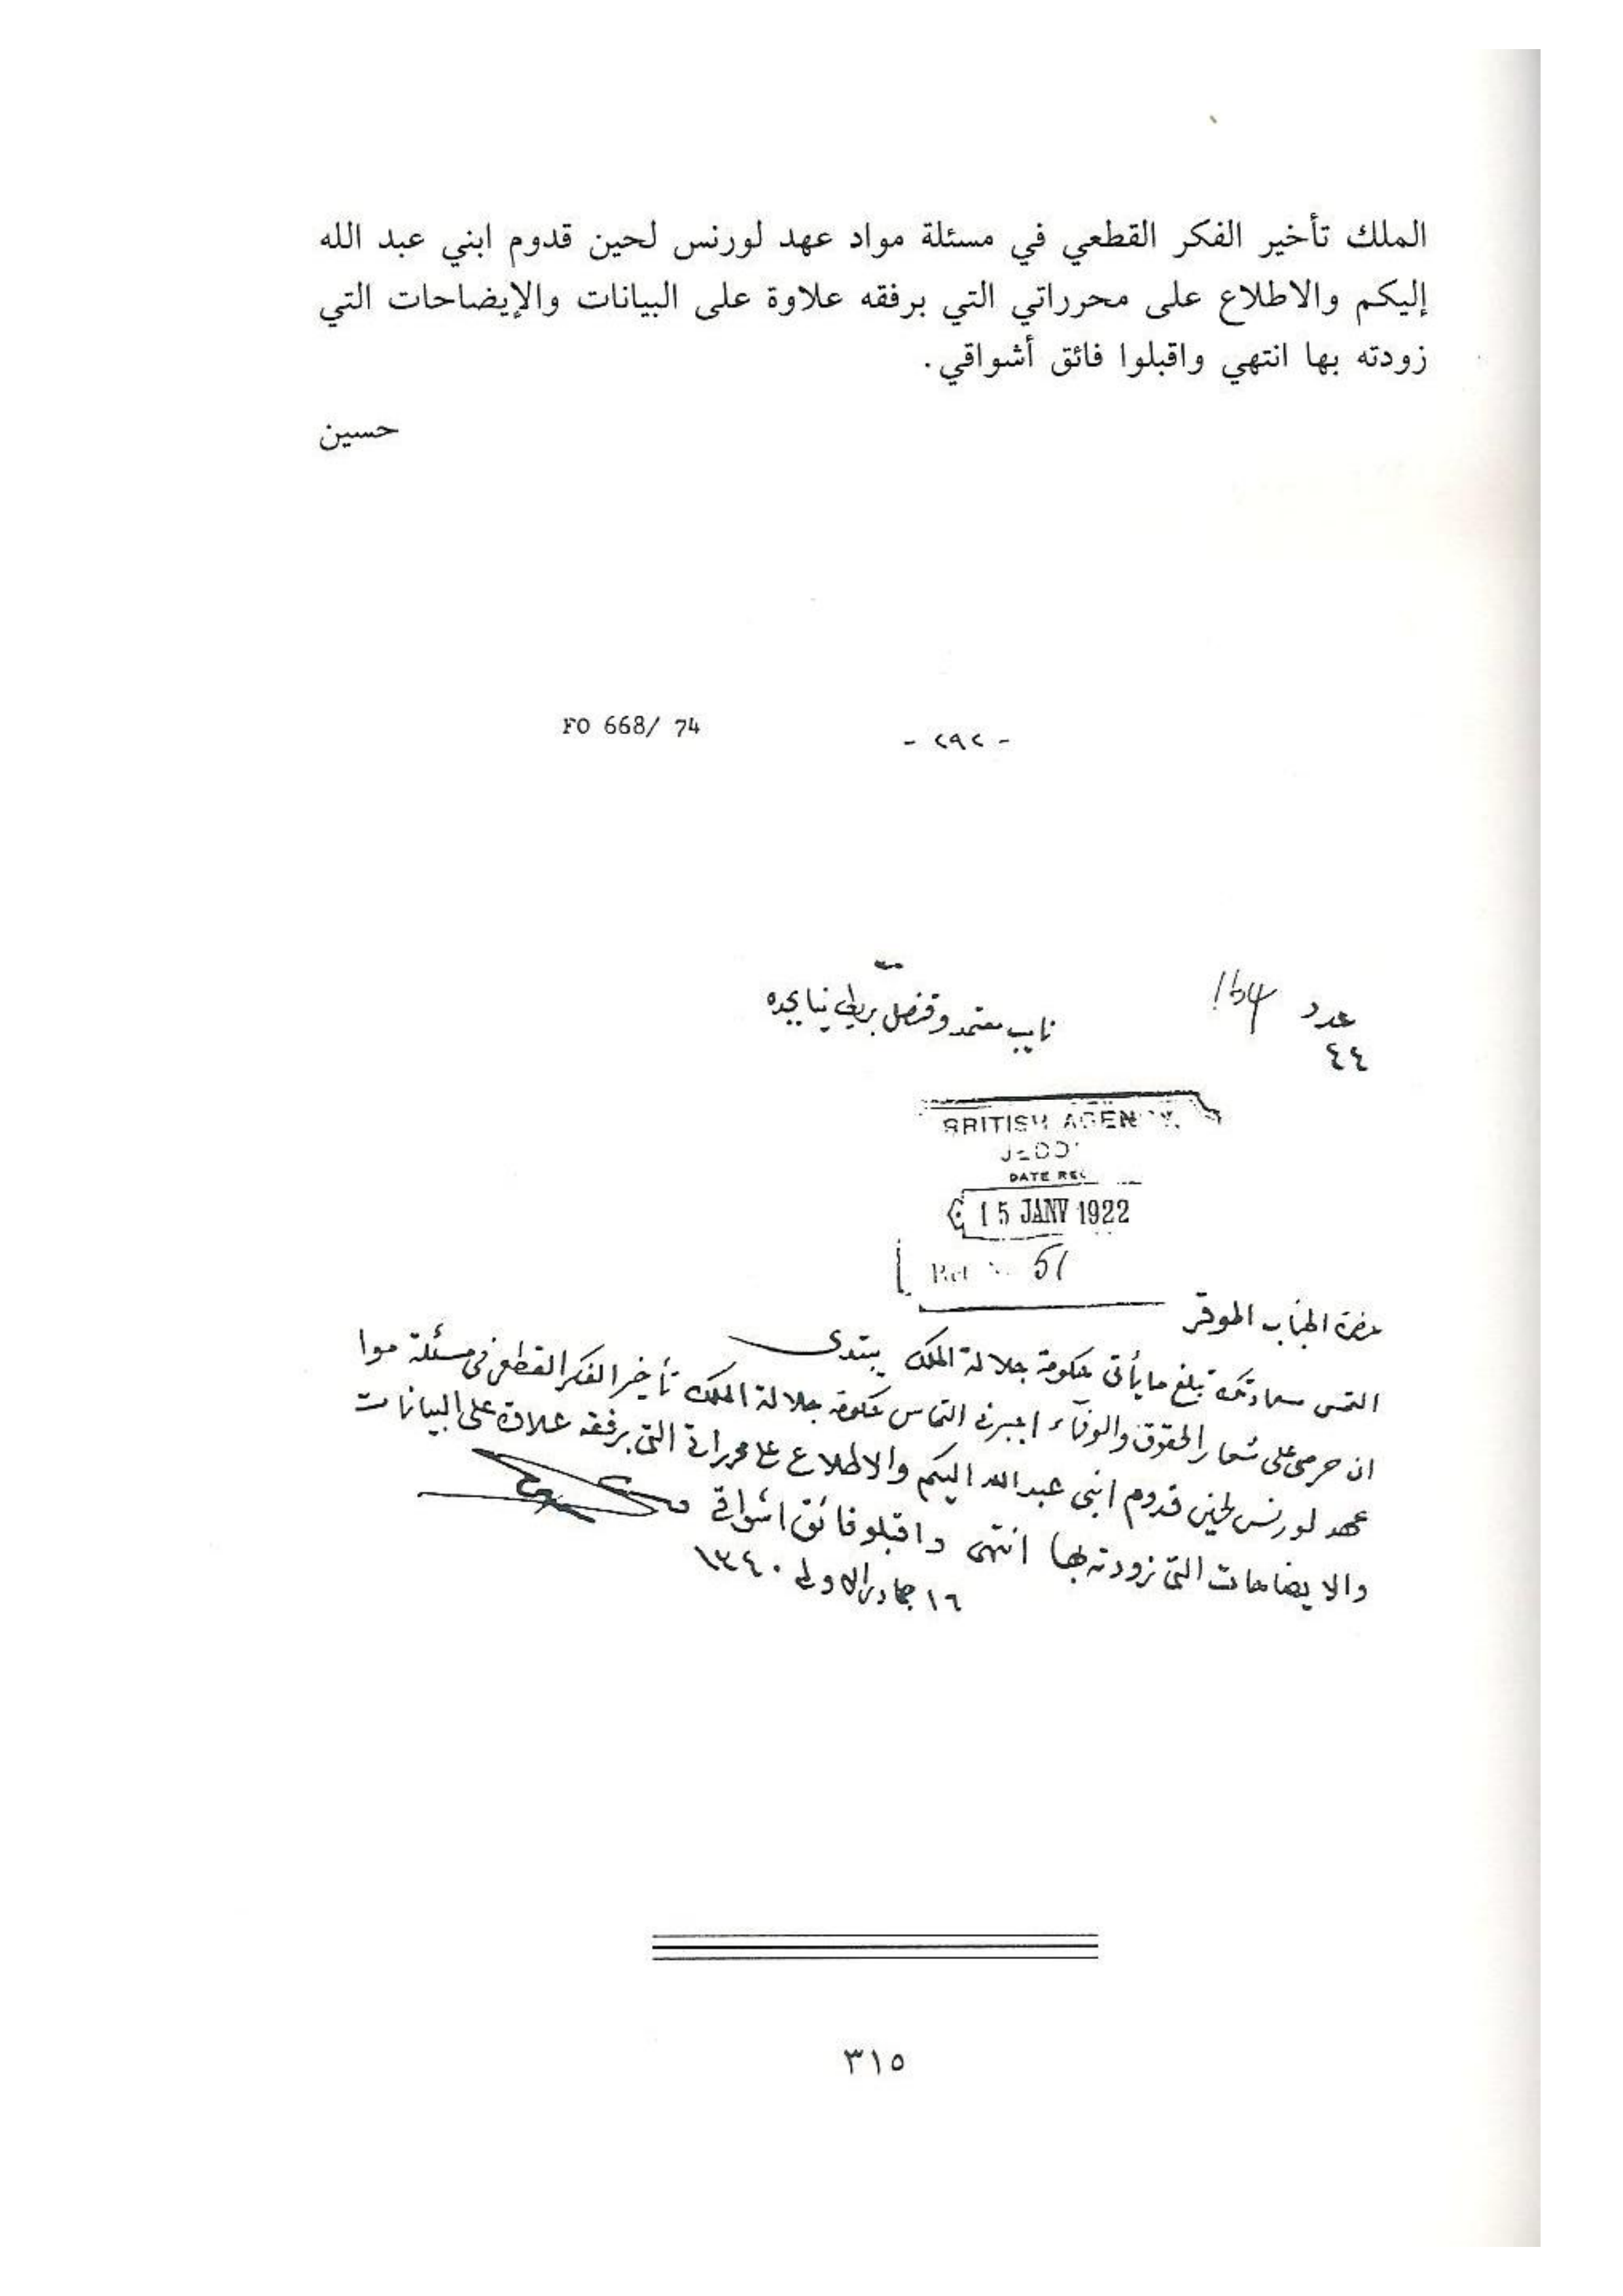 الملك تأخير الفكر القطعي في مسئلة مواد عهد لورنس لحين قدوم ابني عبد الله
إليكم والاطلاع على محرراتي التي برفقه علاوة على البيانات والإيضاحات التي
زودته بها انتهي واقبلوا فائق أشواقي.
حسين
FO 668/ 74
- ٢٩٢ -
نايب معتمد وقنصل بريطانيا بجده
عدد
٤٤
BRITISH AGENCY,
DATE REC
15 JANV 1922
51
حضرة الجناب الموقر
التمس سعادتكم تبلغ ما يأتى حكومة جلالة الملك يبتدى
ان حرصى على شعار الحقوق والوفاء اجبرنى التماس حكومة جلالة الملك تأخير الفكر القطعى فى مسئلة موا
عهد لورنس لحين قدوم ابنى عبدالله اليكم والاطلاع على محرراتى التى برفقه علاوة على البيانات
والايضاحات التى زودته بها انتهى واقبلو فائق اشواقى
١٦ جماد الاولى ١٣٤٠
٣١٥